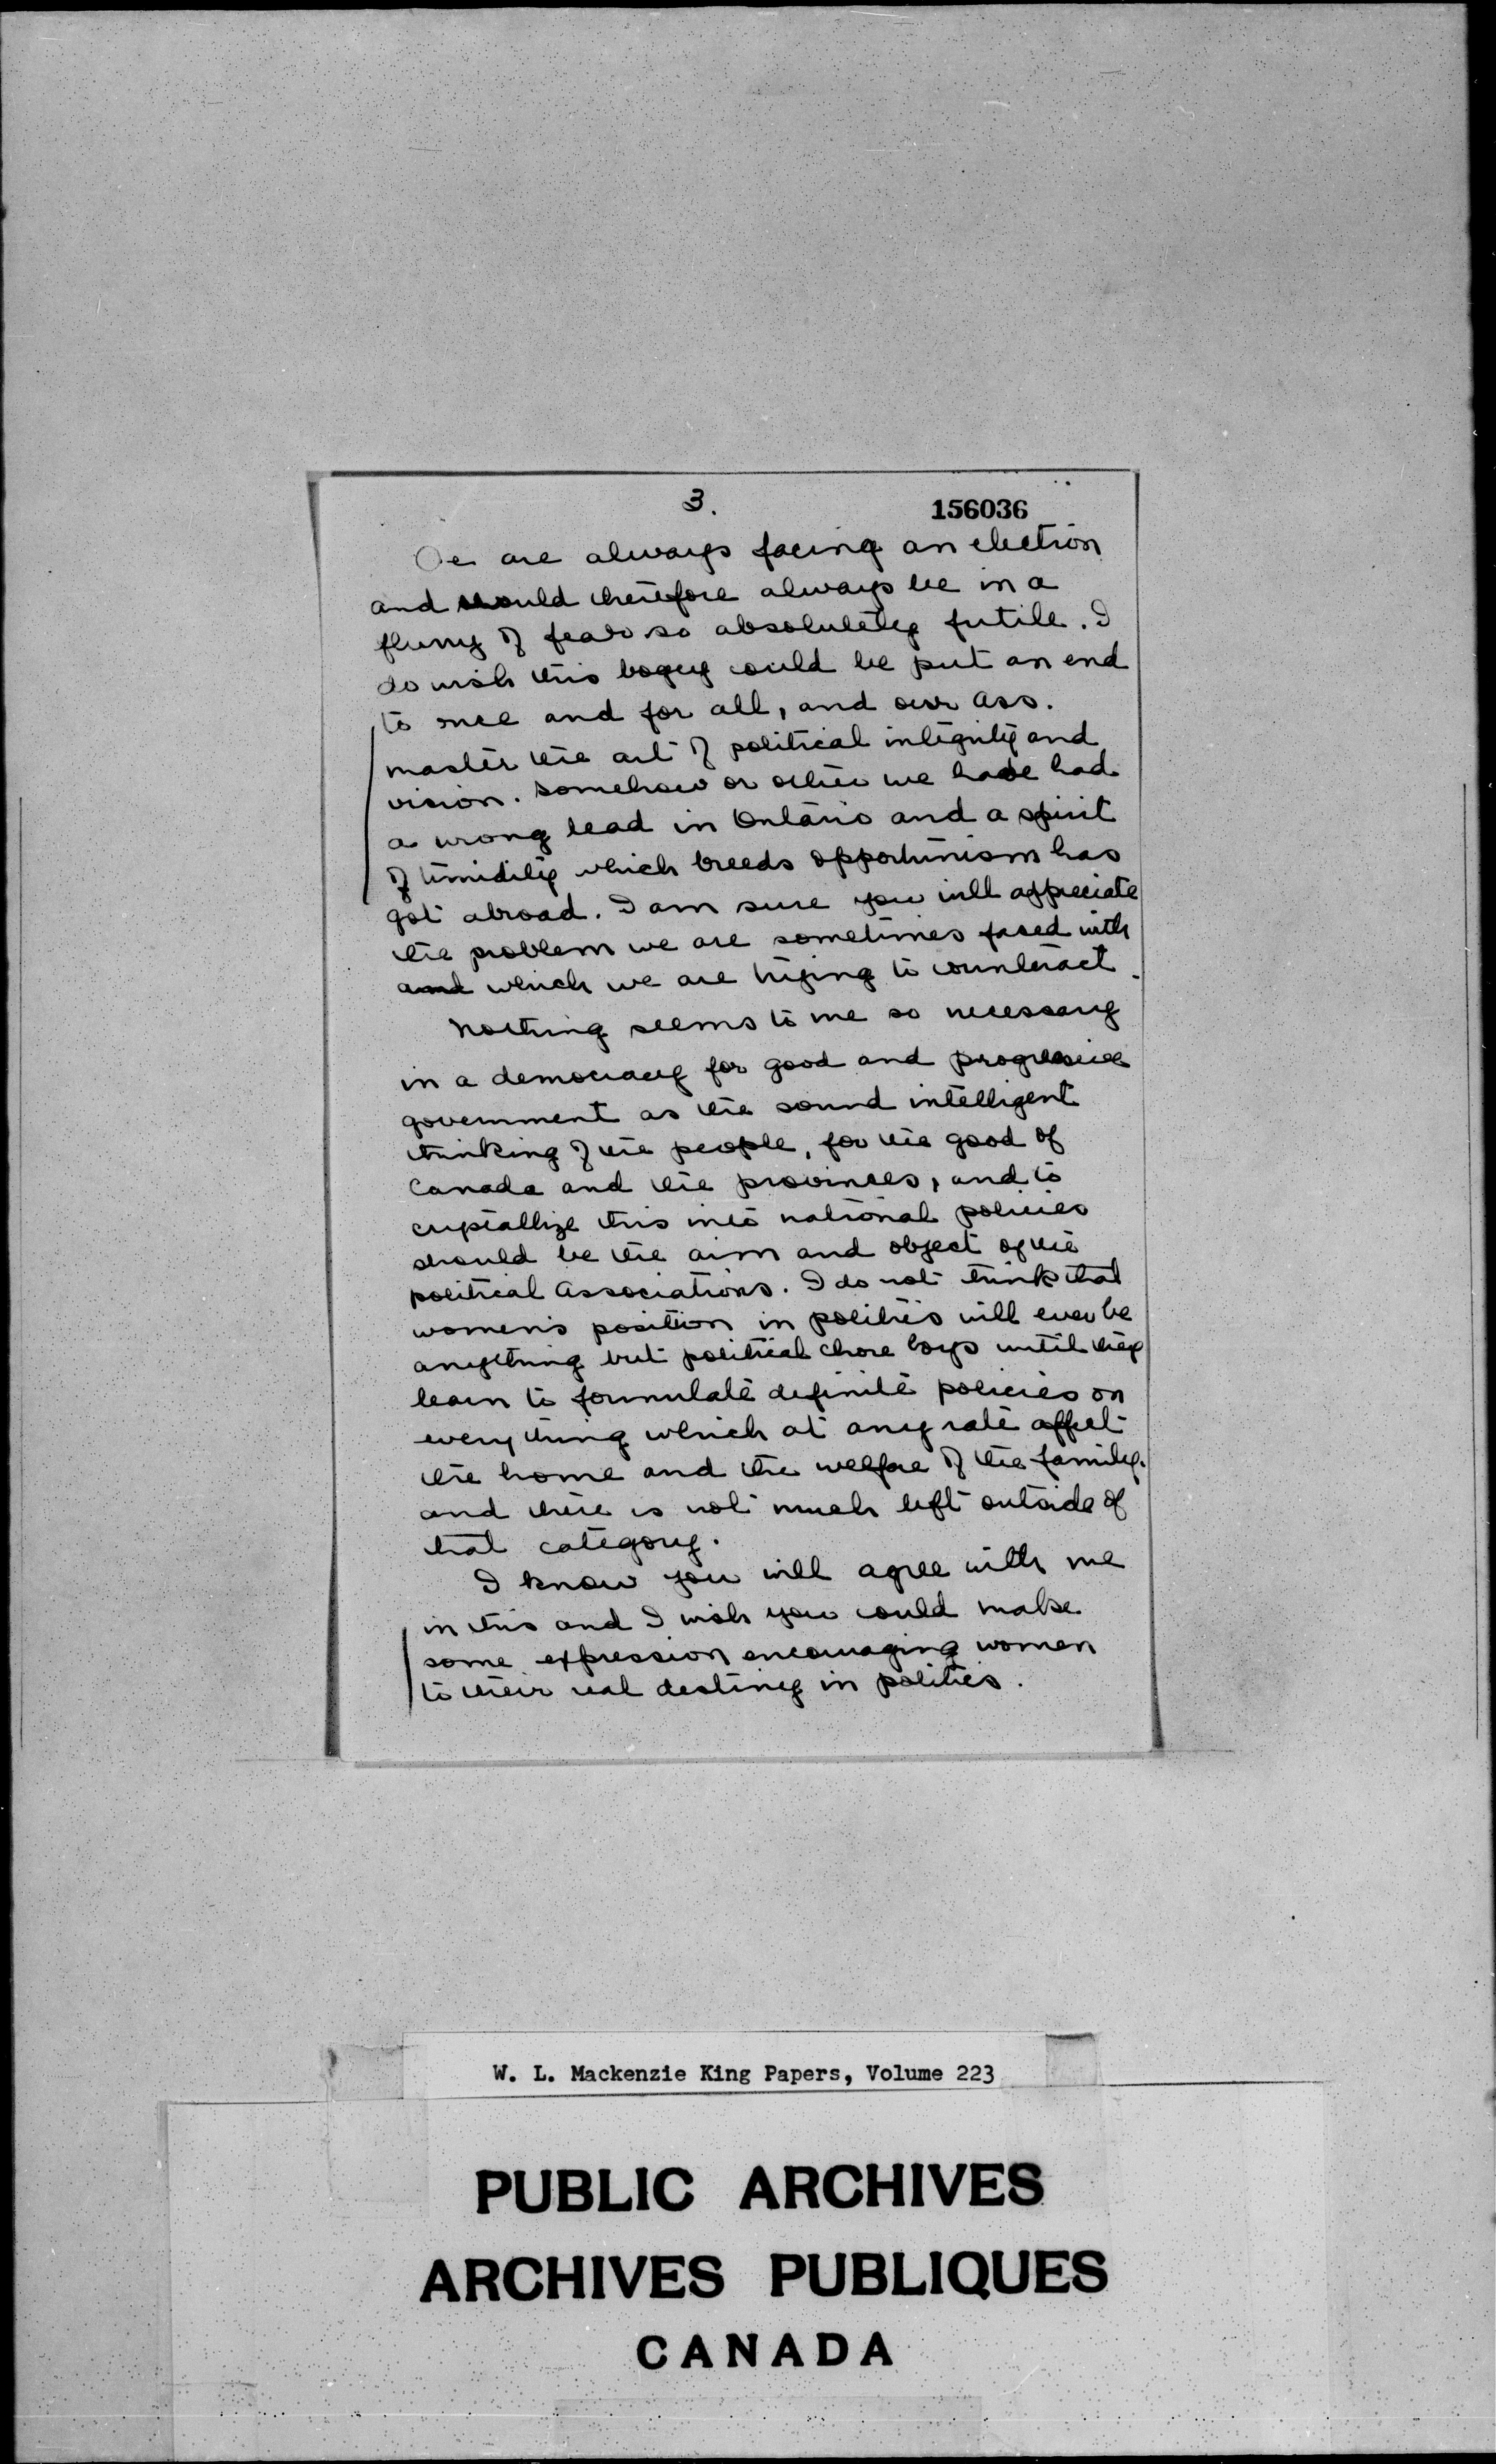 3.
156036
We are always facing an election
and would therefore always be in a
flurry of fear so absolutely futile. I
do wish this bogey could be put an end
to once and for all, and our Ass.
master the art of political integrity and
vision. Somehow or other we have had
a wrong lead in Ontario and a spirit
of timidity which breeds opportunism has
got abroad. I am sure you will appreciate
the problem we are sometimes faced with
and which we are trying to counteract.
Nothing seems to me so necessary
in a democracy for good and progressive
government as the sound intelligent
thinking of the people, for the good of
Canada and the provinces, and to
crystallize this into national policies
should be the aim and object of the
political Associations. I do not think that
women's position in politics will ever be
anything but political chore boys until they
learn to formulate definite policies on
every thing which at any rate affect
the home and the welfare of the family.
and there is not much left outside of
that category.
I know you will agree with me
in this and I wish you could make
some expression encouraging women
to their real destiny in politics.
W. L. Mackenzie King Papers, Volume 223
PUBLIC ARCHIVES
ARCHIVES PUBLIQUES
CANADA